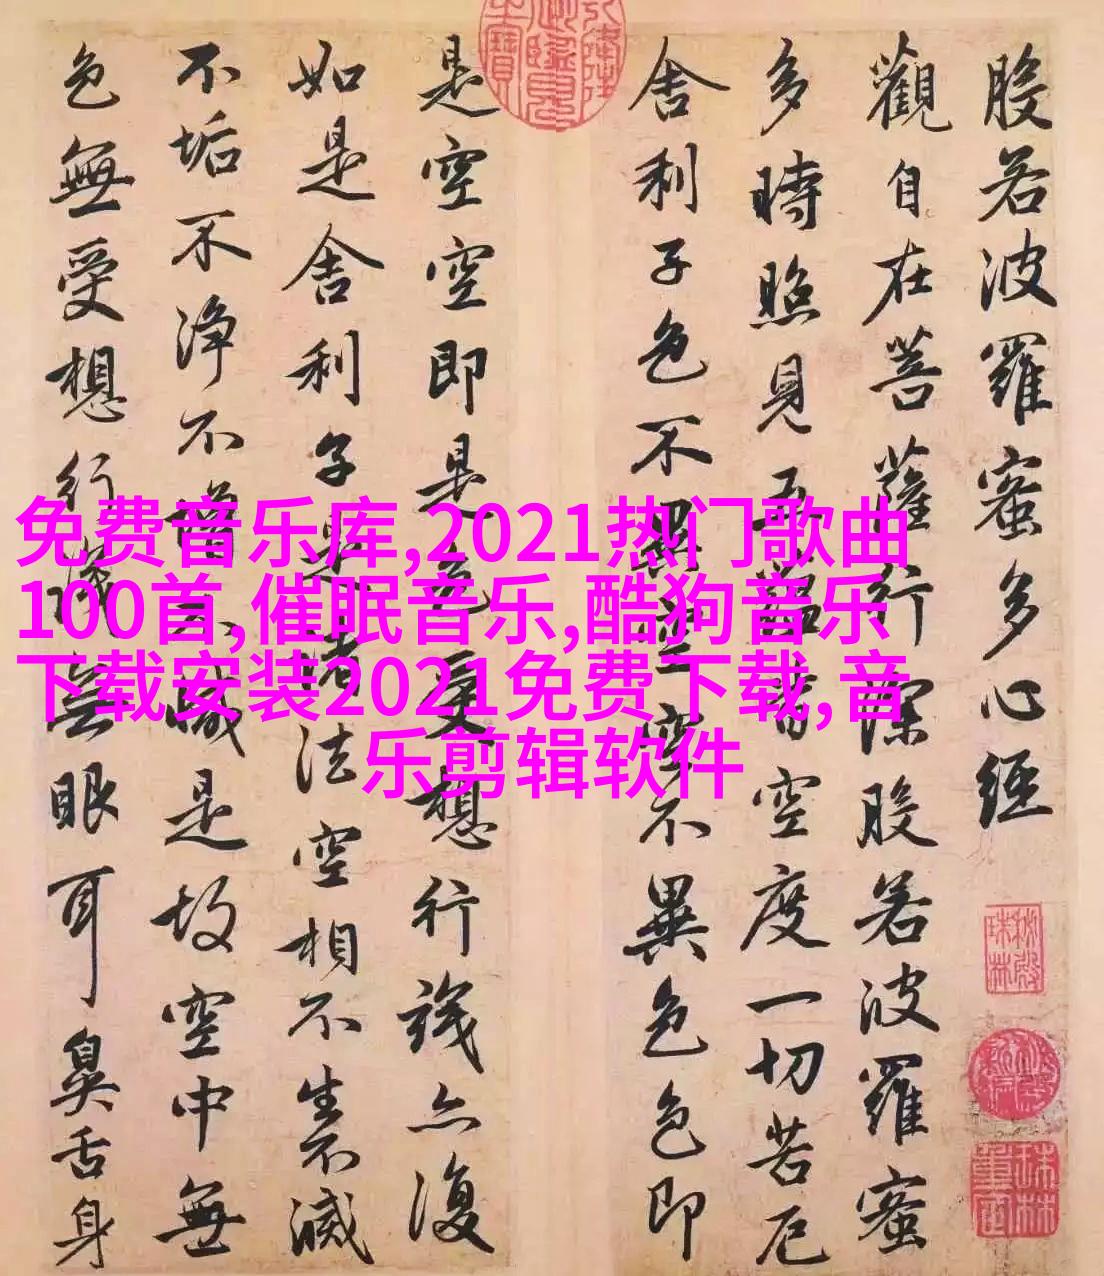 般若波羅蜜多心經
觀自在菩薩行深般若波羅蜜
多時照見五蘊皆空度一切苦厄
舍利子色不異空空不異色色即
是空空即是色受想行識亦復
如是舍利子是諸法空相不生不滅
不垢不淨不增不減是故空中無
色無受想行識無眼耳鼻舌身
秘殿珠林
珠林重定
免费音乐库,2021热门歌曲
100首,催眠音乐,酷狗音乐
下载安装2021免费下载,音
乐剪辑软件